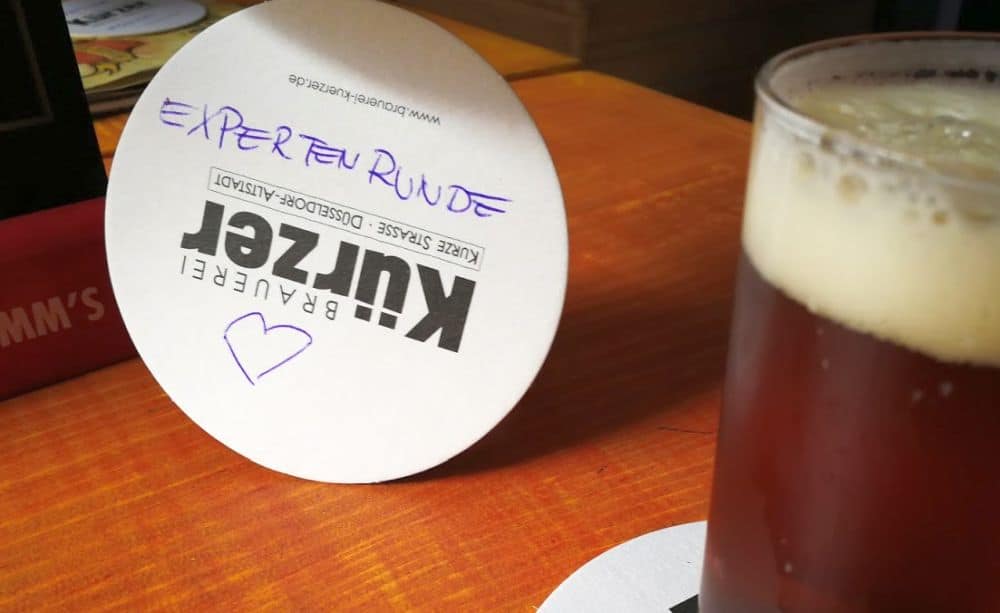 EXPERTENRUNDE
BRAUEREI
Kürzer
KURZE STRASSE · DÜSSELDORF-ALTSTADT
www.brauerei-kuerzer.de
MM'S